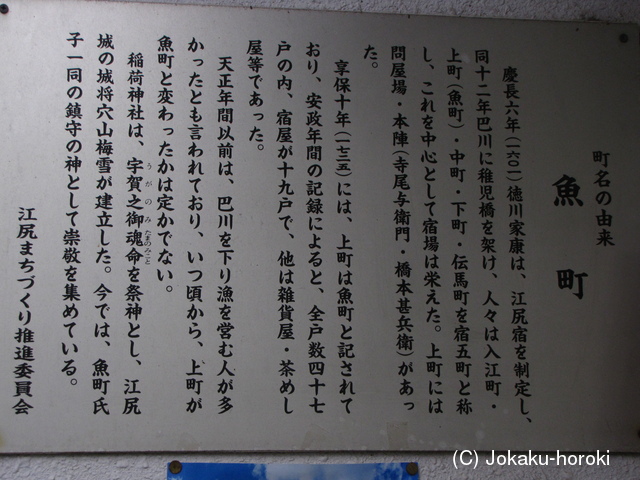 町名の由来
魚町
慶長六年(一六〇一)徳川家康は、江尻宿を制定し、
同十二年巴川に稚児橋を架け、人々は入江町・
上町(魚町)・中町・下町・伝馬町を宿五町と称
し、これを中心として宿場は栄えた。上町には
問屋場・本陣(寺尾与衛門・橋本甚兵衛)があっ
た。
享保十年(一七三五)には、上町は魚町と記されて
おり、安政年間の記録によると、全戸数四十七
戸の内、宿屋が十九戸で、他は雑貨屋・茶めし
屋等であった。
天正年間以前は、巴川を下り漁を営む人が多
かったとも言われており、いつ頃から、上町が
魚町と変わったかは定かでない。
稲荷神社は、宇賀之御魂命を祭神とし、江尻
うがのみたまのみこと
城の城将穴山梅雪が建立した。今では、魚町氏
子一同の鎮守の神として崇敬を集めている。
江尻まちづくり推進委員会
(C) Jokaku-horoki